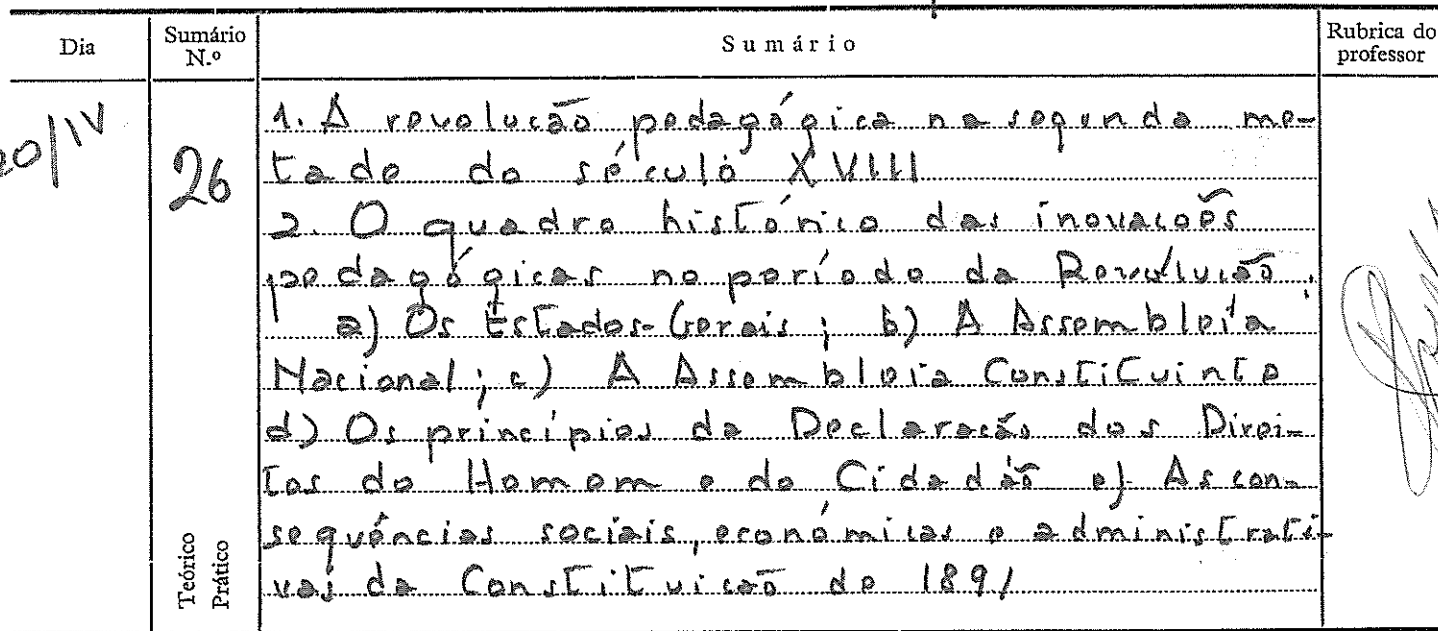 Dia Sumário N.º Sumário Rubrica do professor
20/IV
26
1. A revolução pedagógica na segunda me-
tade do século XVIII
2. O quadro histórico das inovações
pedagógicas no período da Revolução.
a) Os Estados-Gerais; b) A Assembleia
Nacional; c) A Assembleia Constituinte
d) Os princípios da Declaração dos Direi-
tos do Homem e do Cidadão e) As con-
sequências sociais, económicas e administrati-
vas da Constituição de 1891
Teórico
Prático